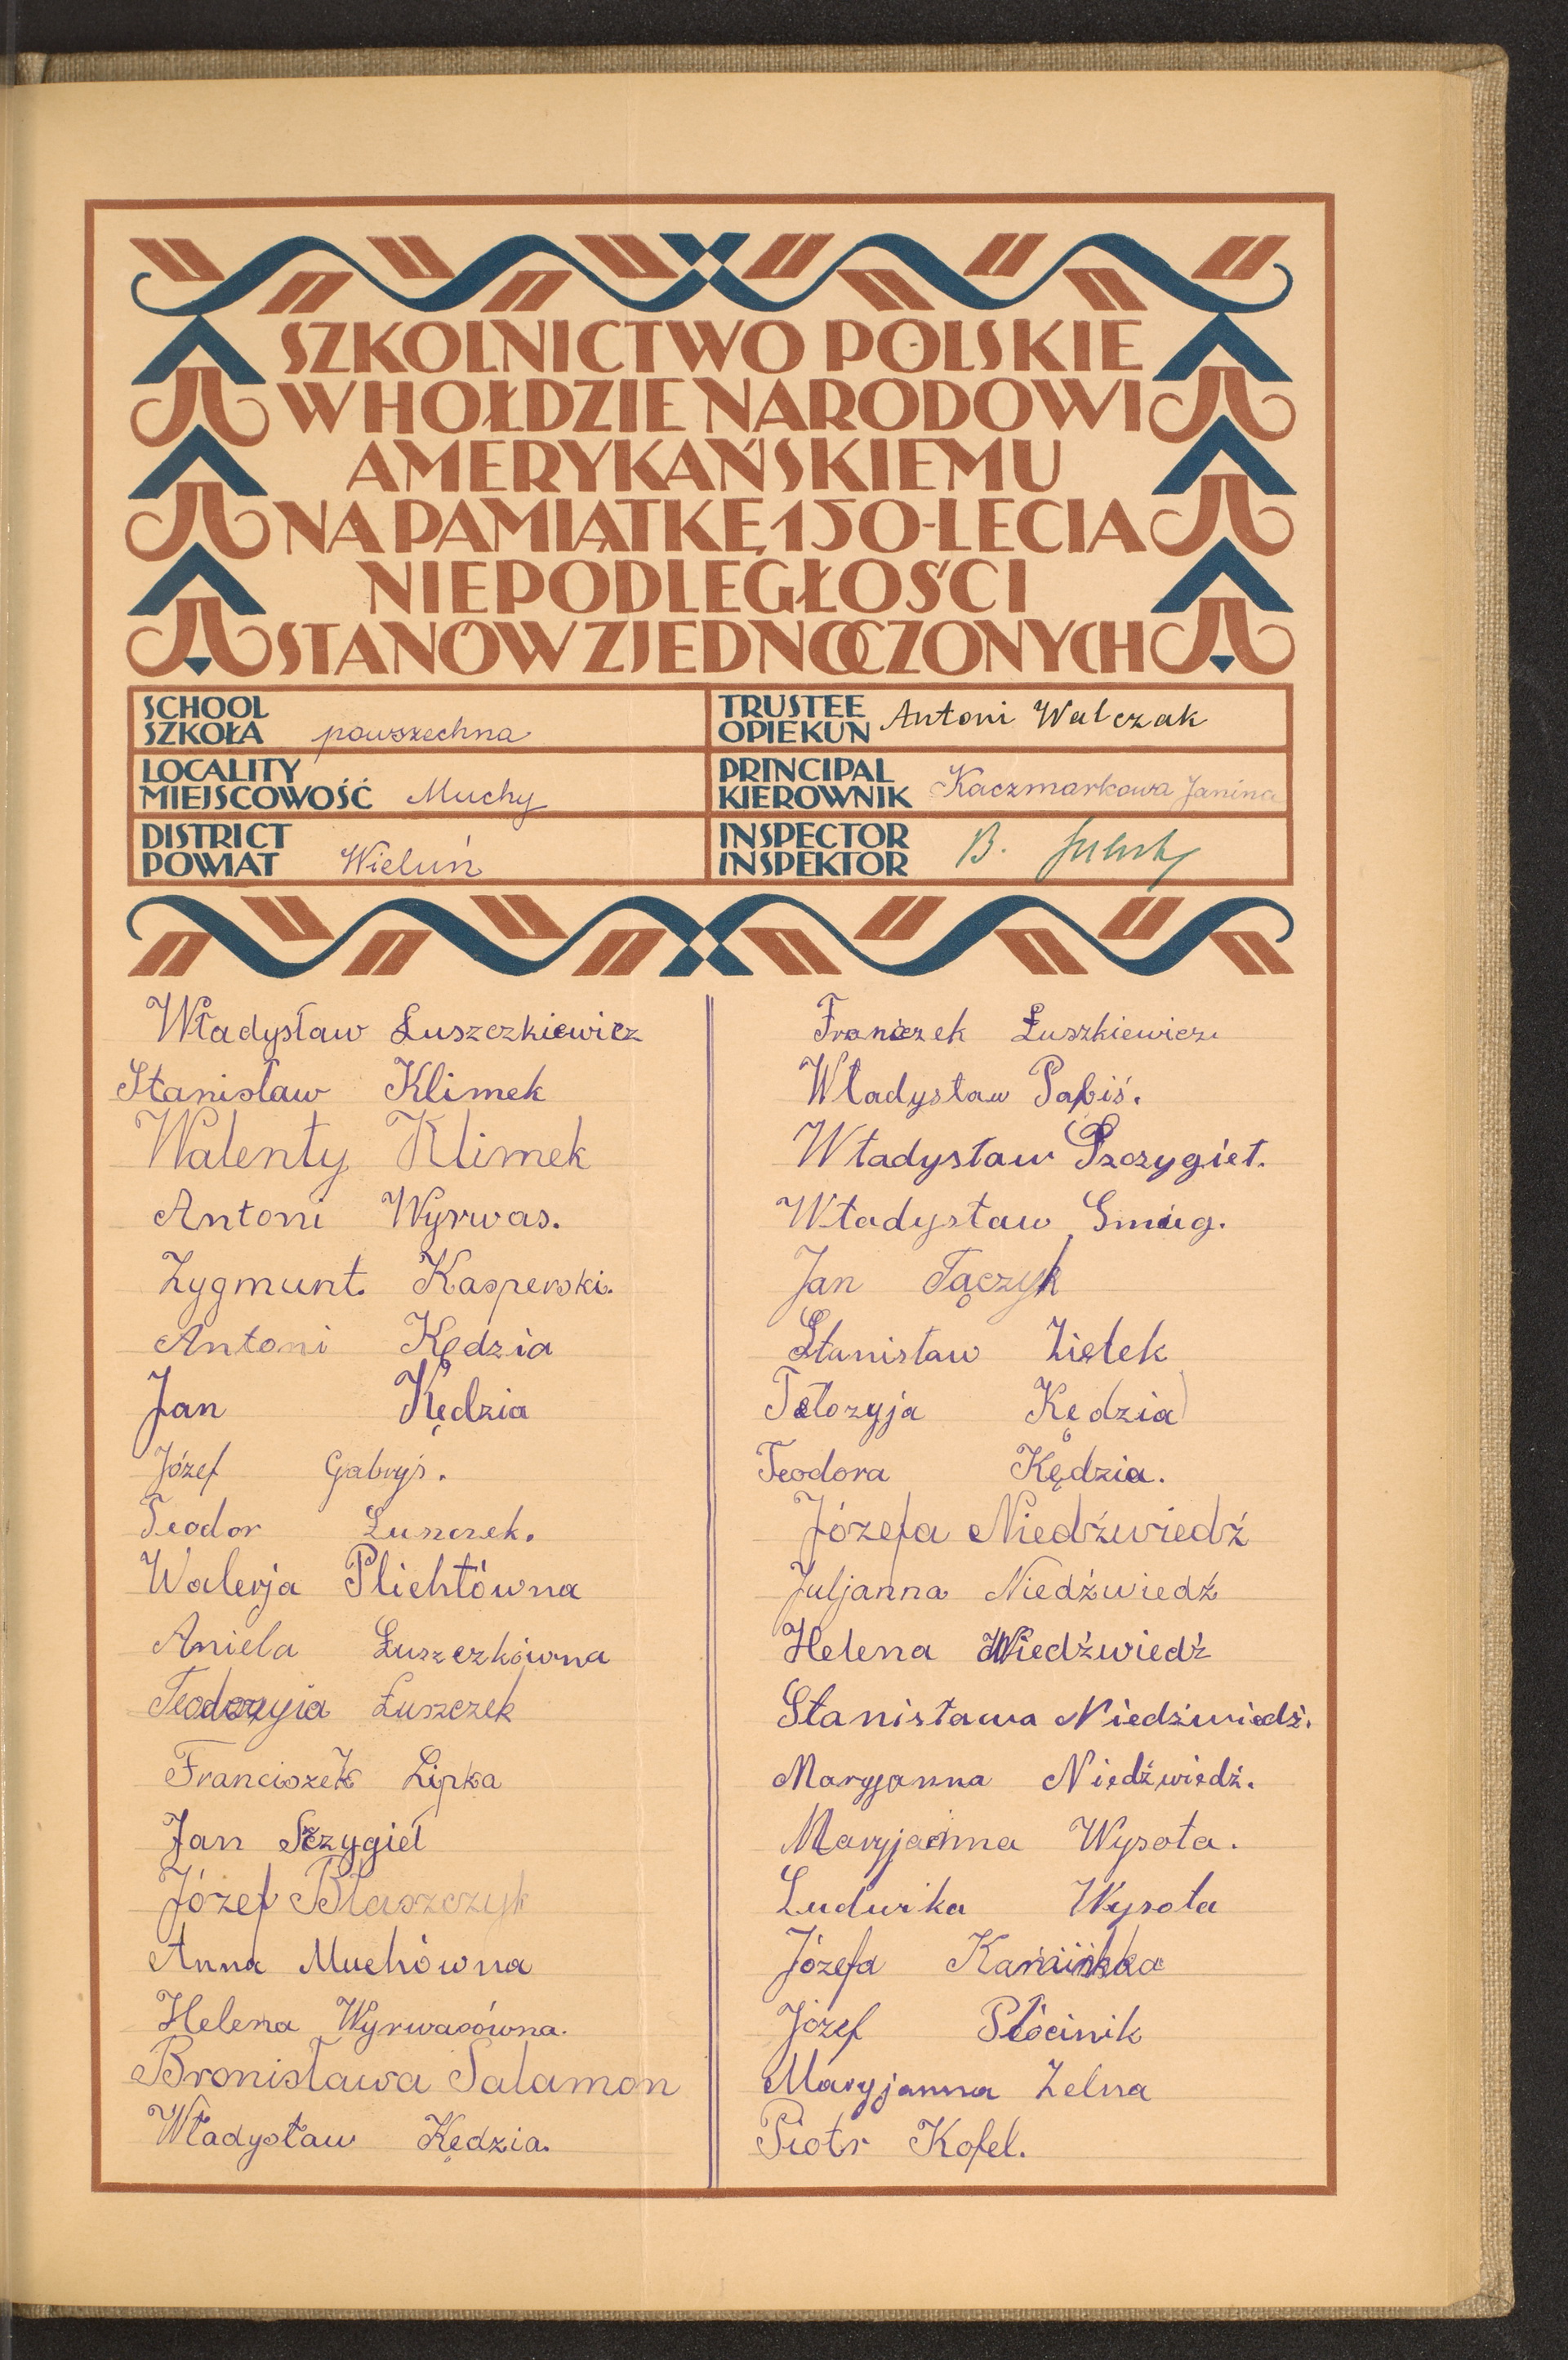 SZKOLNICTWO POLSKIE
W HOŁDZIE NARODOWI
AMERYKAŃSKIEMU
NA PAMIĄTKĘ 150-LECIA
NIEPODLEGŁOŚCI
STANÓW ZJEDNOCZONYCH
SCHOOL
SZKOŁA powszechna
TRUSTEE
OPIEKUN Antoni Walczak
LOCALITY
MIEJSCOWOŚĆ Muchy
PRINCIPAL
KIEROWNIK Kaczmarkowa Janina
DISTRICT
POWIAT Wieluń
INSPECTOR
INSPEKTOR B.
Władysław Łuszczkiewicz
Stanisław Klimek
Walenty Klimek
Antoni Wyrwas.
Zygmunt. Kasperski.
Antoni Kędzia
Jan Kędzia
Józef Gabryś.
Teodor Łuszczek.
Walerja Plichtówna
Aniela Łuszczkówna
Teodozyia Łuszczek
Franciszek Lipka
Jan Szczygieł
Józef Błaszczyk
Anna Muchówna
Helena Wyrwasówna.
Bronisława Salamon
Władysław Kędzia.
Franiczek Łuszkiewicz.
Władysław Pabiś.
Władysław Szczygieł.
Władysław Smug.
Jan Tączyk
Stanisław Ziętek
Kędzia
Teodora Kędzia.
Józefa Niedźwiedź
Juljanna Niedźwiedź
Helena Niedźwiedź
Stanisława Niedźwiedź.
Maryjanna Niedźwiedź.
Maryjanna Wysota.
Ludwika Wysota
Józefa
Józef Płócinik
Maryjanna Zelna
Piotr Kofel.